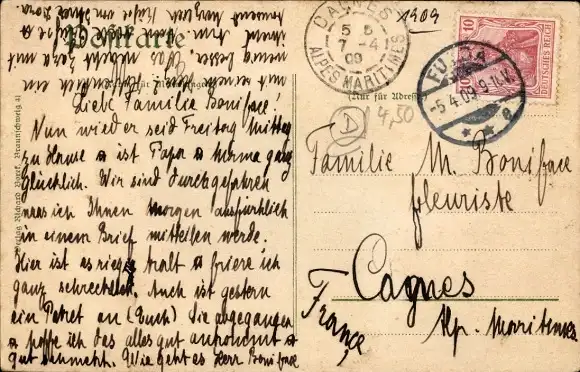 Postkarte
Liebe Familie Boniface!
Nun wieder seid Freitag Mittag
zu Hause u ist Papa u Mama ganz
Glücklich. Wir sind durchgefahren
was ich Ihnen Morgen ausführlich
in einem Brief mitteilen werde.
Hier ist es riesig kalt u friere ich
ganz schrecklich. Auch ist gestern
ein Paket an (Euch) die abgegangen
u hoffe ich das alles gut ankommt u
gut schmeckt. Wie geht es Herr Boniface
Verlag Richard Borek, Braunschweig 41
(Nur für Adresse)
1909
CANNES
5 5
7 -4
09
ALPES MARITIMES
10
DEUTSCHES REICH
FULDA
-5.4.09. 9-11V.
* * a
D
4,50
Familie M. Boniface
fleuriste
Cagnes
Alp. Maritimes
France